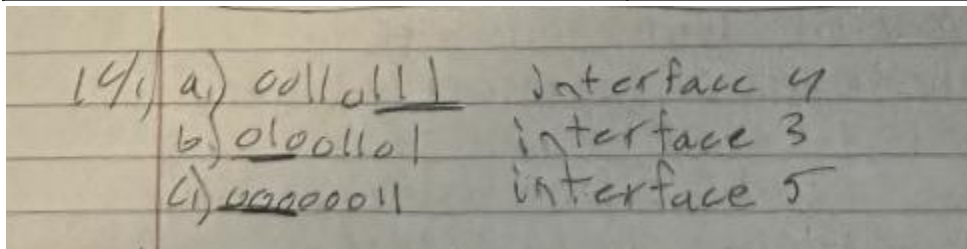 14.) a.) 00110111 interface 4
b.) 01001101 interface 3
c.) 00000011 interface 5